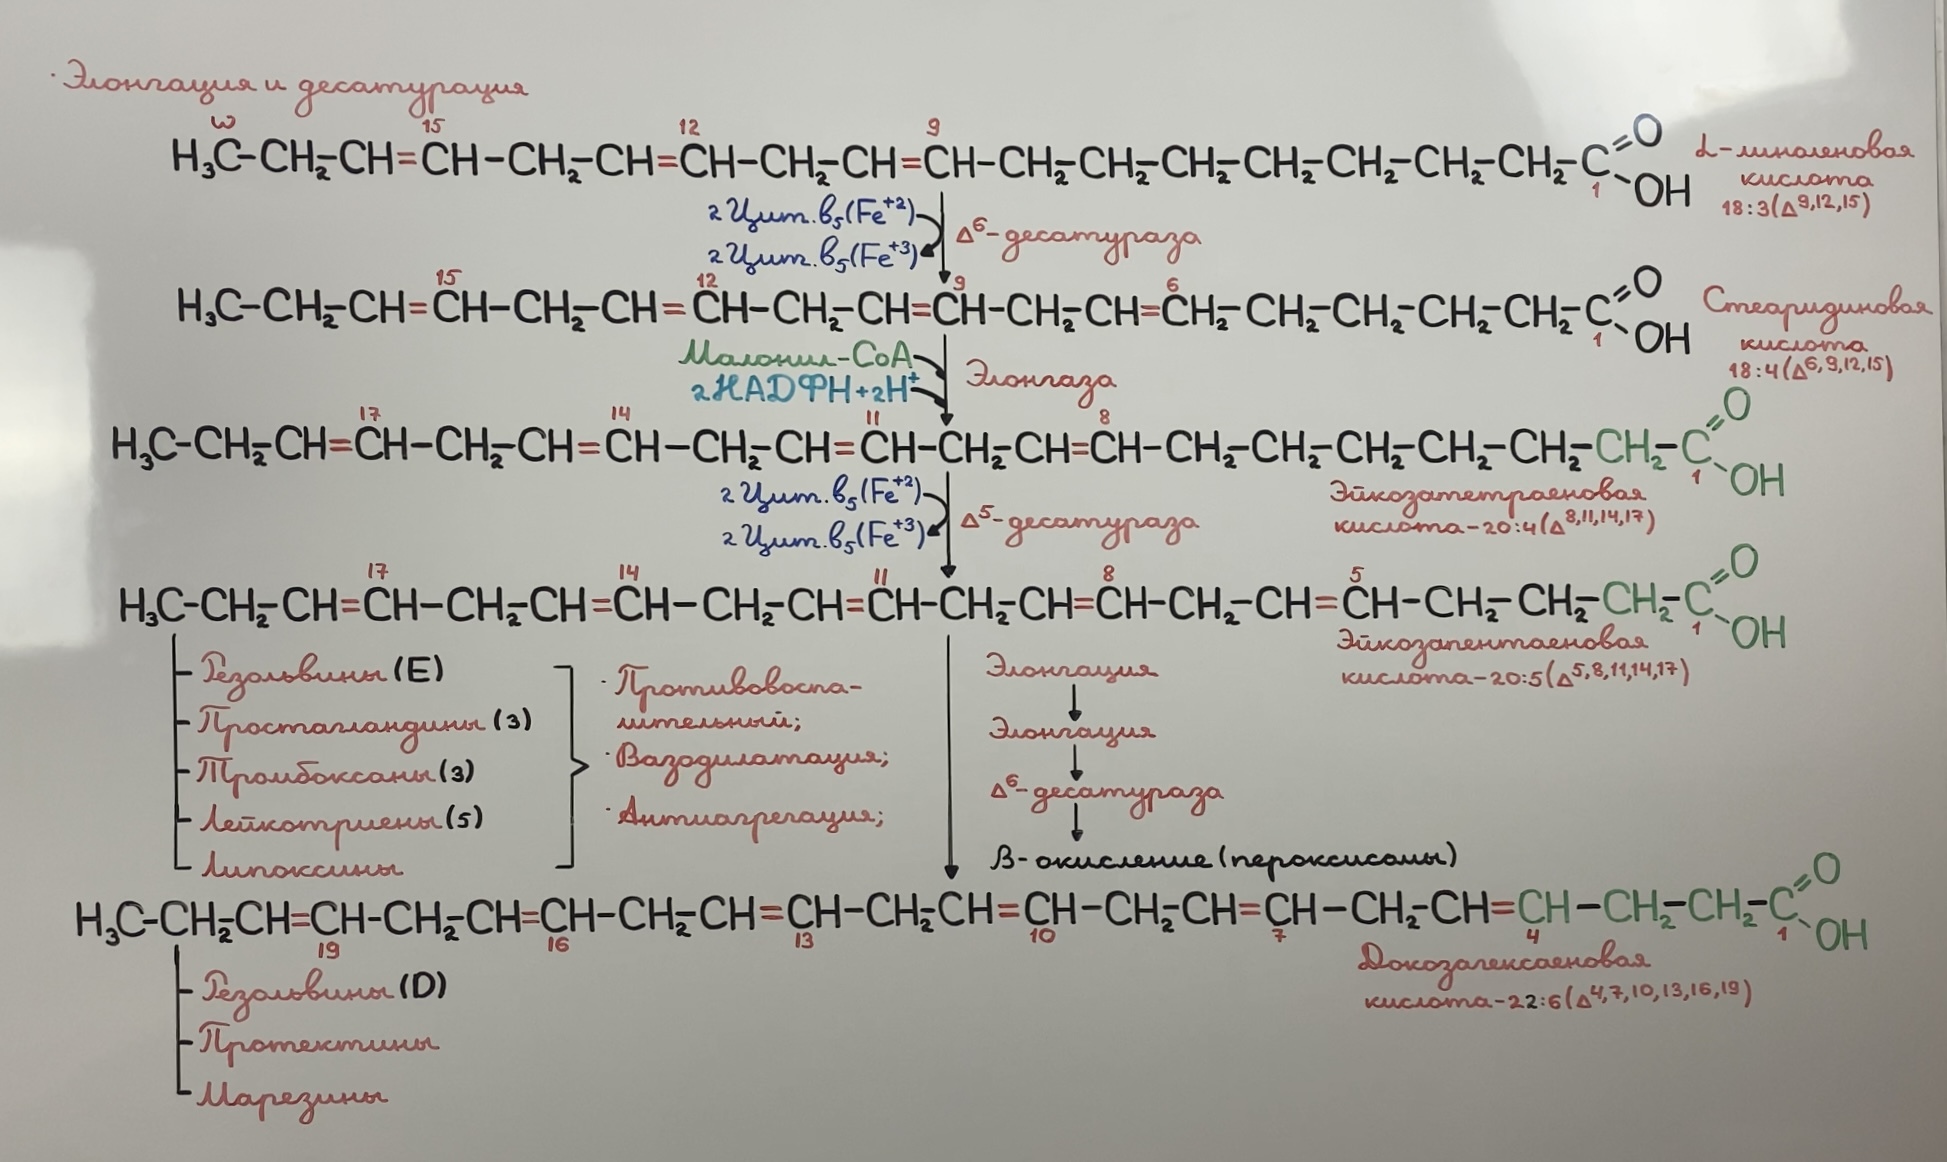 · Элонгация и десатурация
ω 15 12 9
H₃C-CH₂-CH=CH-CH₂-CH=CH-CH₂-CH=CH-CH₂-CH₂-CH₂-CH₂-CH₂-CH₂-CH₂-C=O
1 OH
α-линоленовая
кислота
18:3(Δ9,12,15)
2 Цит. b₅(Fe⁺²)
2 Цит. b₅(Fe⁺³)
Δ⁶-десатураза
15 12 9 6
H₃C-CH₂-CH=CH-CH₂-CH=CH-CH₂-CH=CH-CH₂-CH=CH₂-CH₂-CH₂-CH₂-CH₂-C=O
1 OH
Стеаридиновая
кислота
18:4(Δ6,9,12,15)
Малонил-CoA
2НАДФН+2H⁺
Элонгаза
17 14 11 8
H₃C-CH₂-CH=CH-CH₂-CH=CH-CH₂-CH=CH-CH₂-CH=CH-CH₂-CH₂-CH₂-CH₂-CH₂-CH₂-C=O
1 OH
Эйкозатетраеновая
кислота-20:4(Δ8,11,14,17)
2 Цит. b₅(Fe⁺²)
2 Цит. b₅(Fe⁺³)
Δ⁵-десатураза
17 14 11 8 5
H₃C-CH₂-CH=CH-CH₂-CH=CH-CH₂-CH=CH-CH₂-CH=CH-CH₂-CH=CH-CH₂-CH₂-CH₂-C=O
1 OH
Эйкозапентаеновая
кислота-20:5(Δ5,8,11,14,17)
Резольвины (E)
Простагландины (3)
Тромбоксаны (3)
Лейкотриены (5)
Липоксины
· Противовоспа-
лительный;
· Вазодилатация;
· Антиагрегация;
Элонгация
Элонгация
Δ⁶-десатураза
β-окисление (пероксисомы)
H₃C-CH₂-CH=CH-CH₂-CH=CH-CH₂-CH=CH-CH₂-CH=CH-CH₂-CH=CH-CH₂-CH=CH-CH₂-CH₂-C=O
19 16 13 10 7 4 1 OH
Докозагексаеновая
кислота-22:6(Δ4,7,10,13,16,19)
Резольвины (D)
Протектины
Марезины